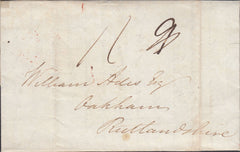 11
William Ades Esq
Oakham
Rutlandshire